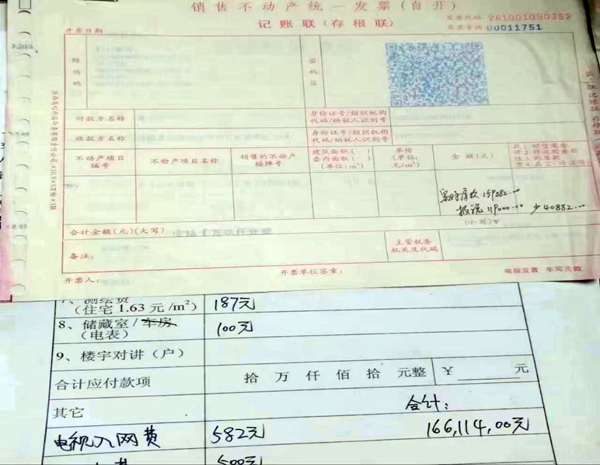 销售不动产统一发票(自开)
记账联(存根联)
发票代码 261001090252
发票号码 00011751
开票日期
密码区
付款方名称
身份证号/组织机构代码/纳税人识别号
收款方名称
身份证号/组织机构代码/纳税人识别号
不动产项目编号
不动产项目名称
销售的不动产楼牌号
建筑面积(
套内面积(
(单位:m²)
单价
(单位:元/m²)
金额(元)
159882.00
119000.00 少40882.00
合计金额(元)(大写)
(小写)¥
备注:
主管税务机关及代码
开票人:
开票单位签章:
电脑发票 手写无效
7、测绘费
(住宅1.63元/m²)
187元
8、储藏室/车房
(电表)
100元
9、楼宇对讲(户)
合计应付款项
拾 万 仟 佰 拾 元整 ¥ 元
其它
合计:
电视入网费
582元
166,114,00元
500元